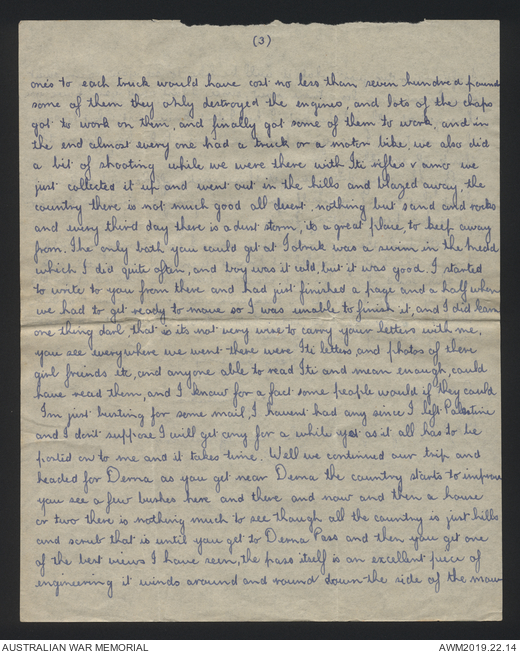 (3)
ones to each truck would have cost no less than seven hundred pound
some of them they only destroyed the engines, and lots of the chaps
got to work on them, and finally got some of them to work, and in
the end almost every one had a truck or a motor bike, we also did
a bit of shooting while we were there with Iti rifles & amo we
just collected it up and went out in the hills and blazed away. the
country there is not much good all desert nothing but sand and rocks
and every third day there is a dust storm, its a great place, to keep away
from. The only bath you could get at Tobruk was a swim in the Medd
which I did quite often, and boy was it cold, but it was good. I started
to write to you from there and had just finished a page and a half when
we had to get ready to move so I was unable to finish it, and I did learn
one thing darl that is its not very wise to carry your letters with me,
you see everywhere we went there were Iti letters, and photos of there
girl freinds etc, and anyone able to read Iti and mean enough, could
have read them, and I know for a fact some people would if they could
I'm just bursting for some mail, I havent had any since I left Palestine
and I don't suppose I will get any for a while yet as it all has to be
posted on to me and it takes time. Well we continued our trip and
headed for Derna as you get near Derna the country starts to improve
you see a few bushes here and there and now and then a house
or two there is nothing much to see though all the country is just hills
and scrub that is until you get to Derna Pass and then you get one
of the best views I have seen, the pass itself is an excellent piece of
engineering it winds around and round down the side of the moun
AUSTRALIAN WAR MEMORIAL
AWM2019.22.14